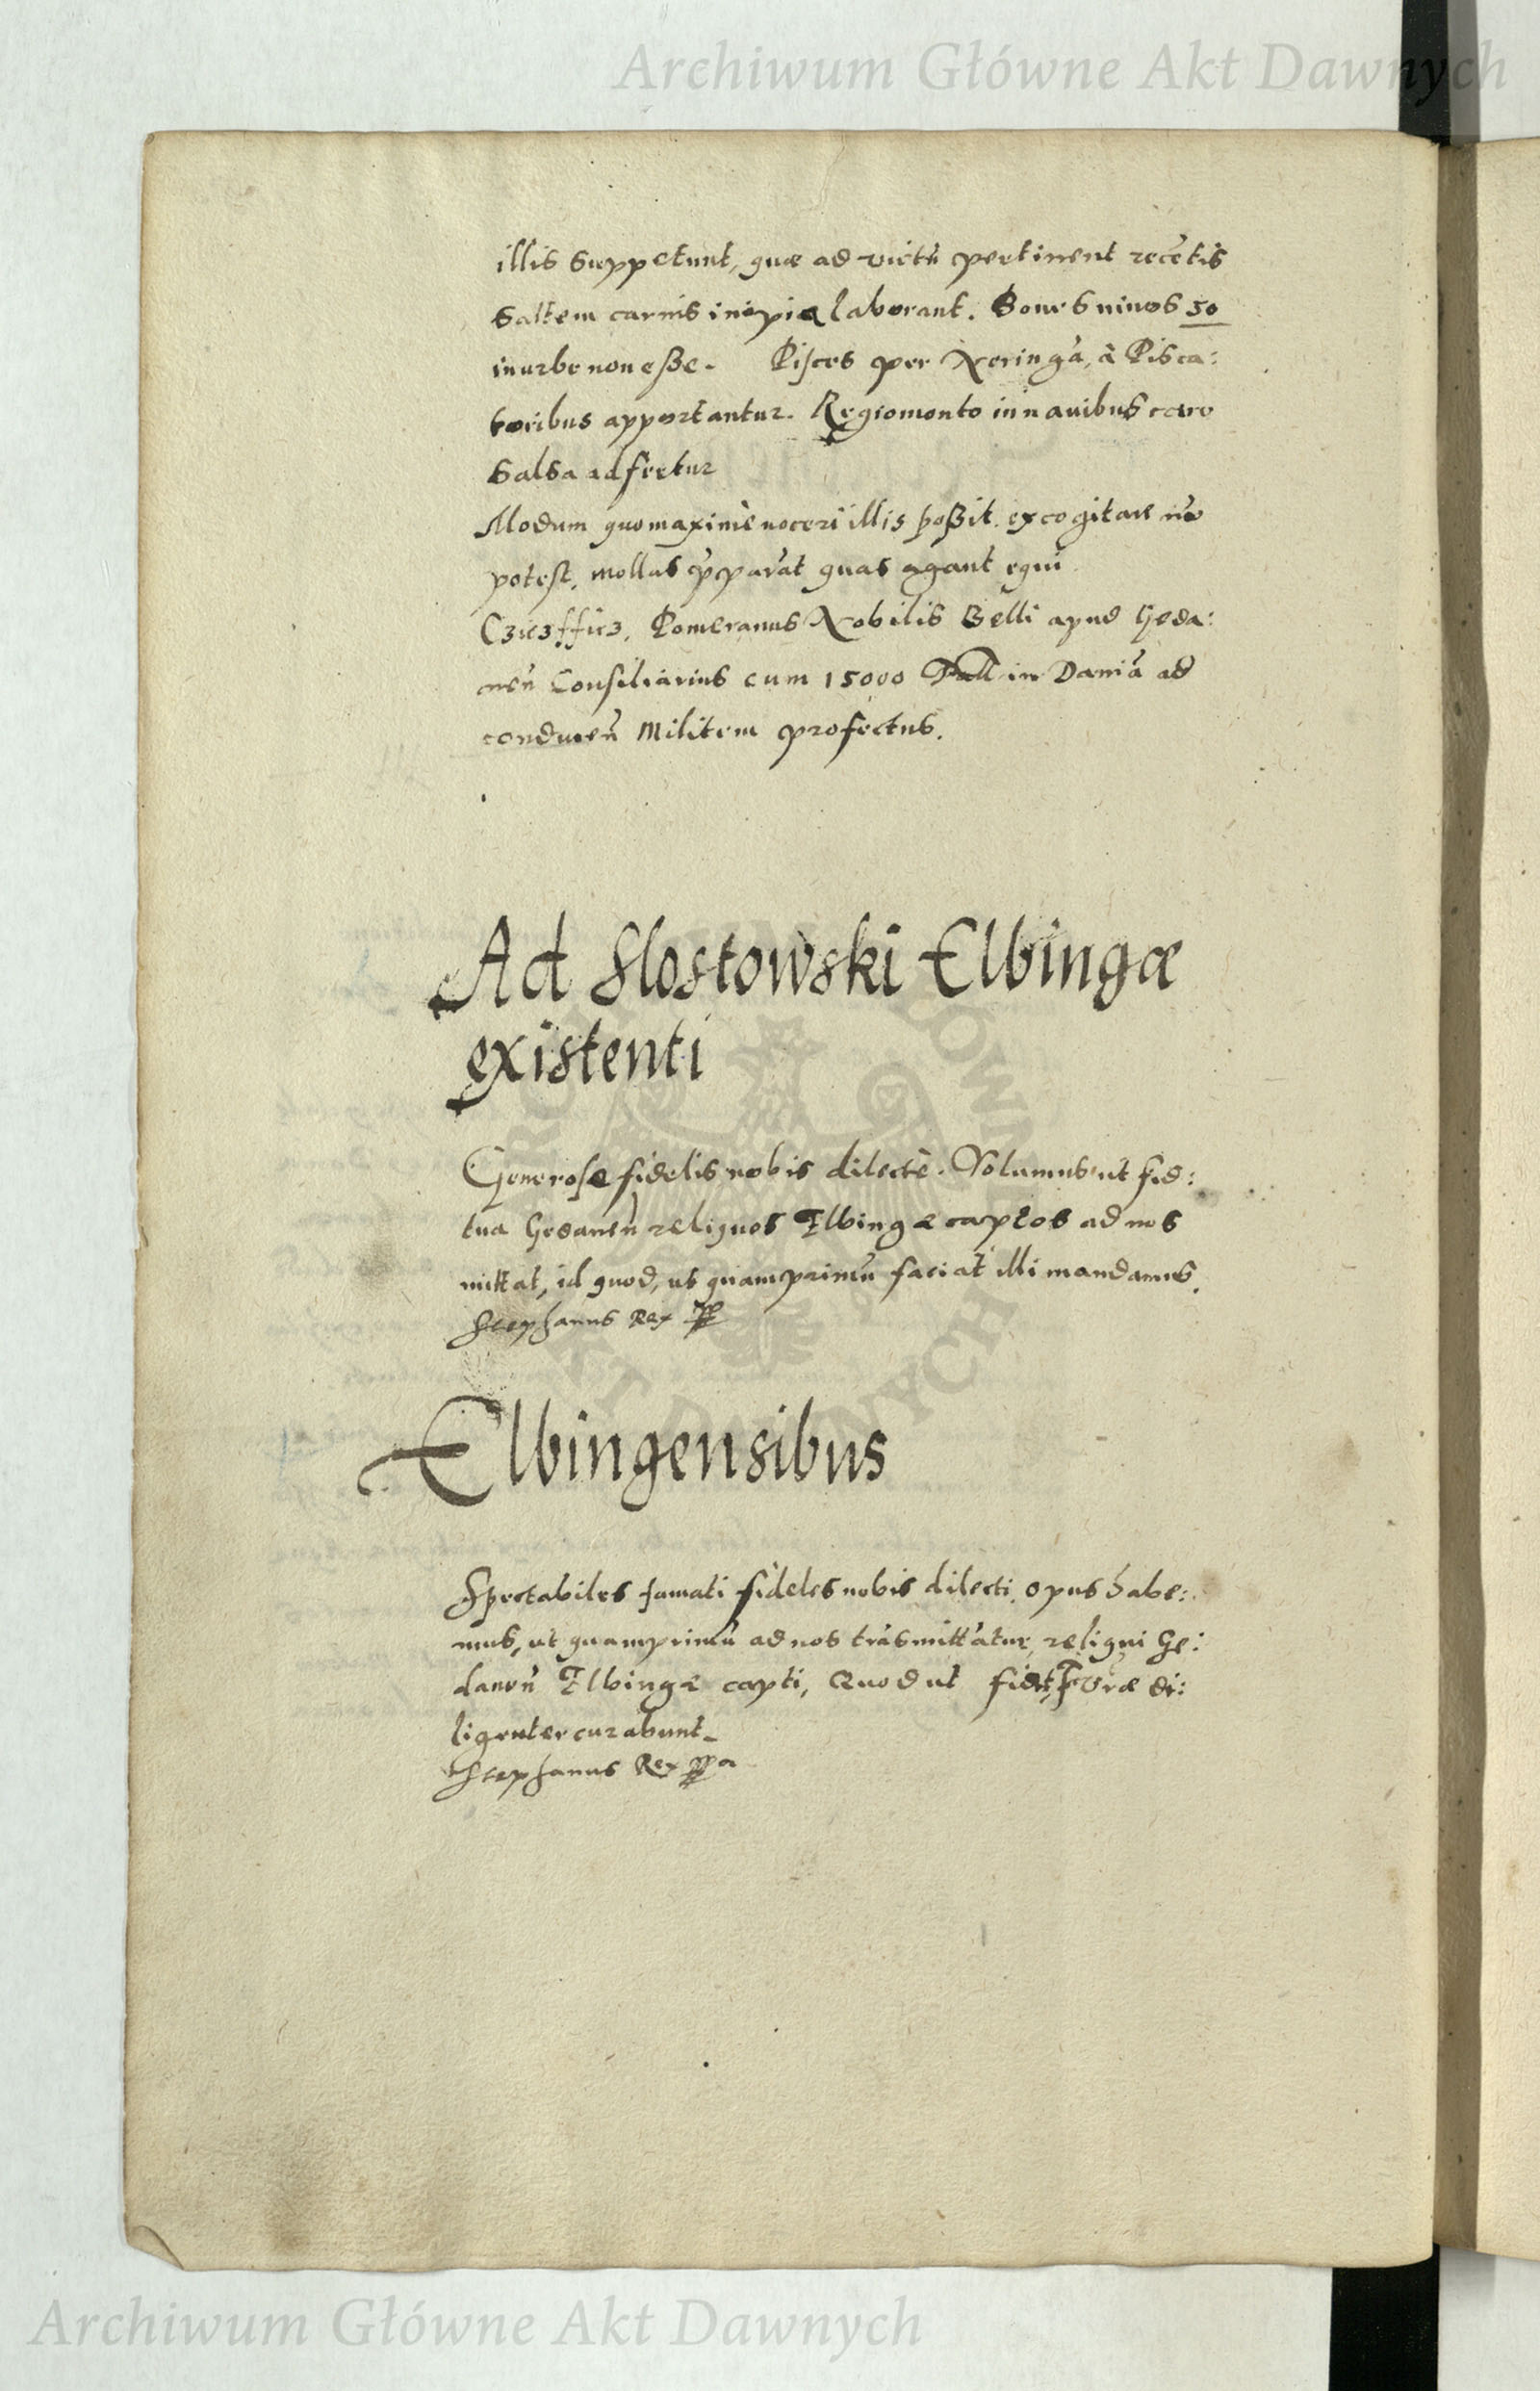 Archiwum Główne Akt Dawnych
illis suppetunt, quæ ad victũ pertinent recẽtis
saltem carnis inopia laborant. Boues viuos 50
in urbe non esße. Pisces per Neringã, à Pisca:
toribus apportantur. Regiomonto in nauibus caro
salsa adfertur
Modum quo maximè noceri illis poßit. excogitare nõ
potest, mollas p̃parãt quas agant equi
Pomeranus Nobilis Belli apud Geda:
neñ Consiliarius cum 15000 Tall in Daniã ad
conduceñ Militem profectus.
Ad Slostowski Elbingæ
existenti
Generose fidelis nobis dilectè. Volumus ut fid:
tua Gedaneñ reliquos Elbingæ captos ad nos
mittat, id quod, ut quamprimũ faciat illi mandamus.
Stephanus Rex
Elbingensibus
Spectabiles famati fideles nobis dilecti. Opus habe:
mus, ut quamprimũ ad nos trãsmittãtur, reliqui Ge:
daneñ Elbingæ capti, Quod ut vræ di:
ligenter curabunt
Stephanus Rex
ARCHIWUM GŁÓWNE AKT DAWNYCH
Archiwum Główne Akt Dawnych